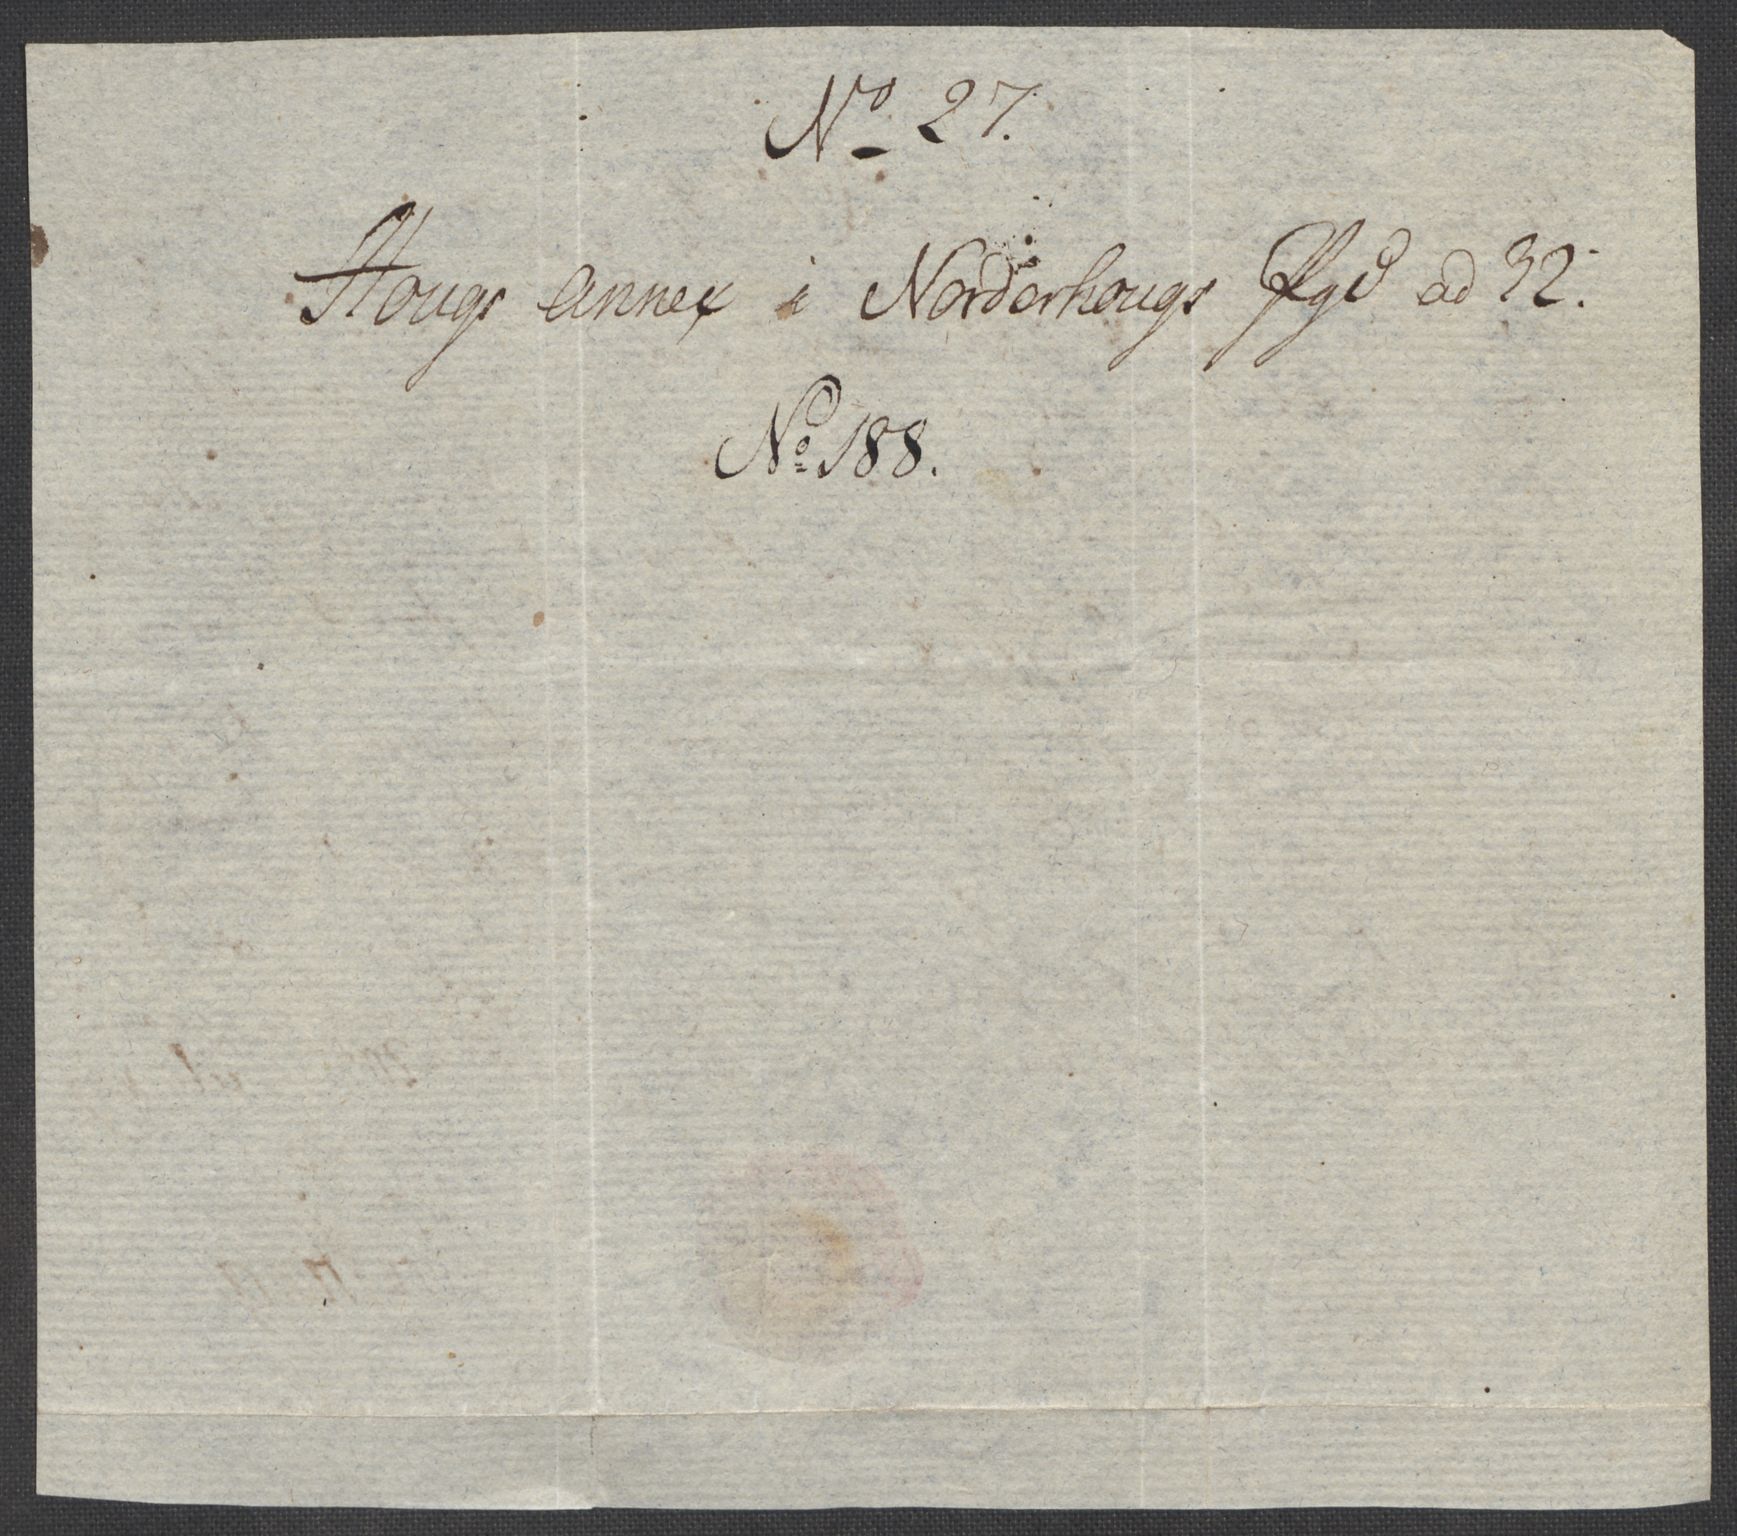 No 27.
Hougs annex i Norderhougs Pgd ad 32.
No 188.